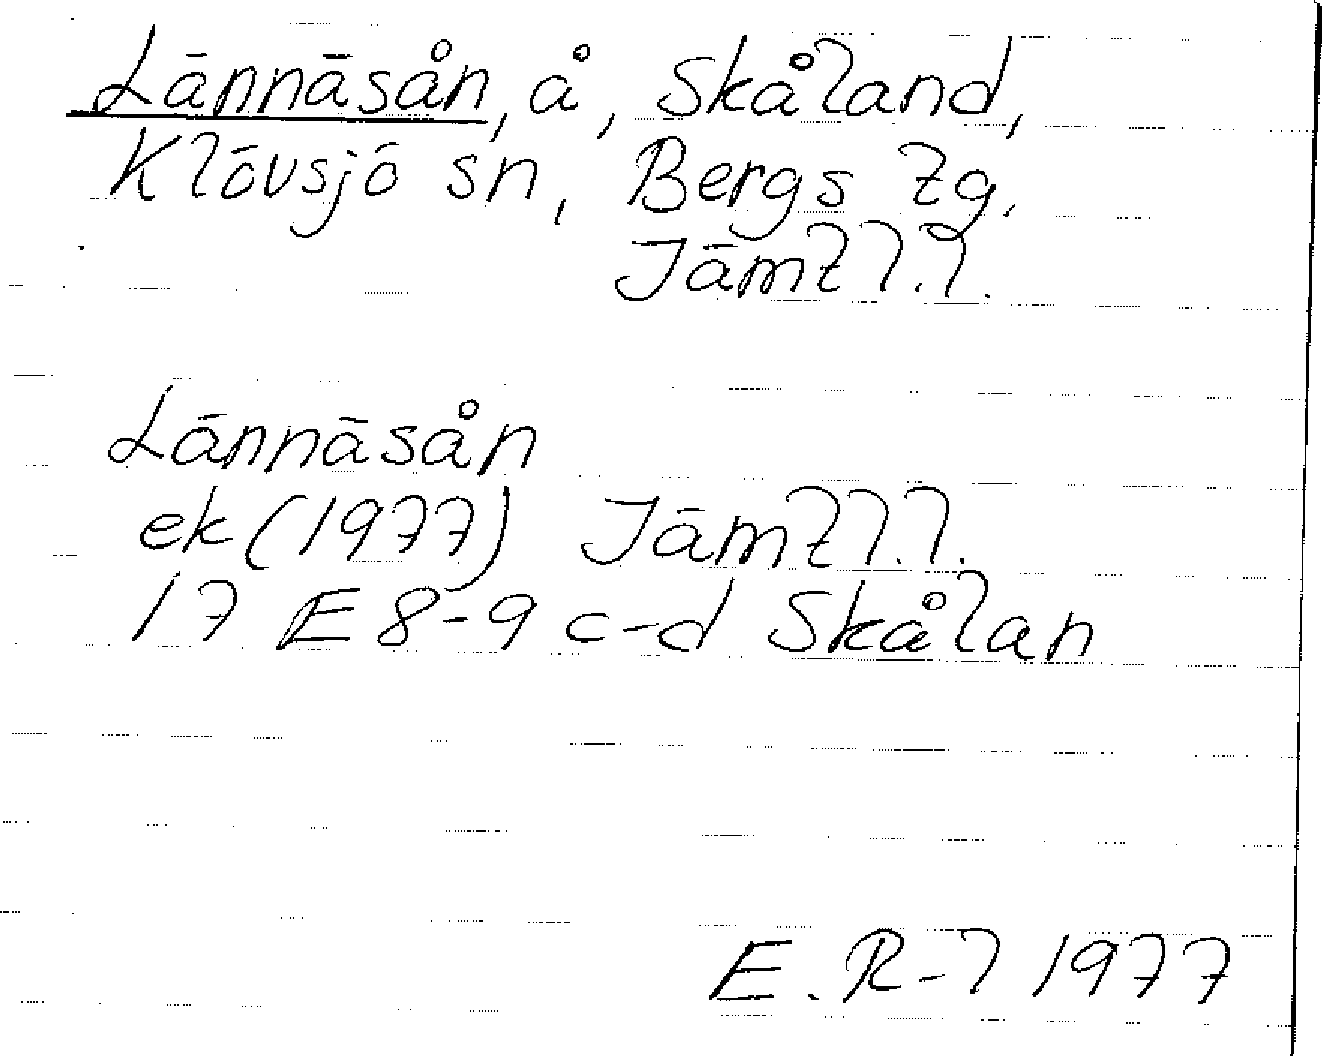 Lännäsån, å, Skåland,
Klövsjö sn, Bergs tg.
Jämtl.l.
Lännäsån
ek (1977) Jämtl.l.
17 E 8-9 c-d Skålan
E. R-l 1977